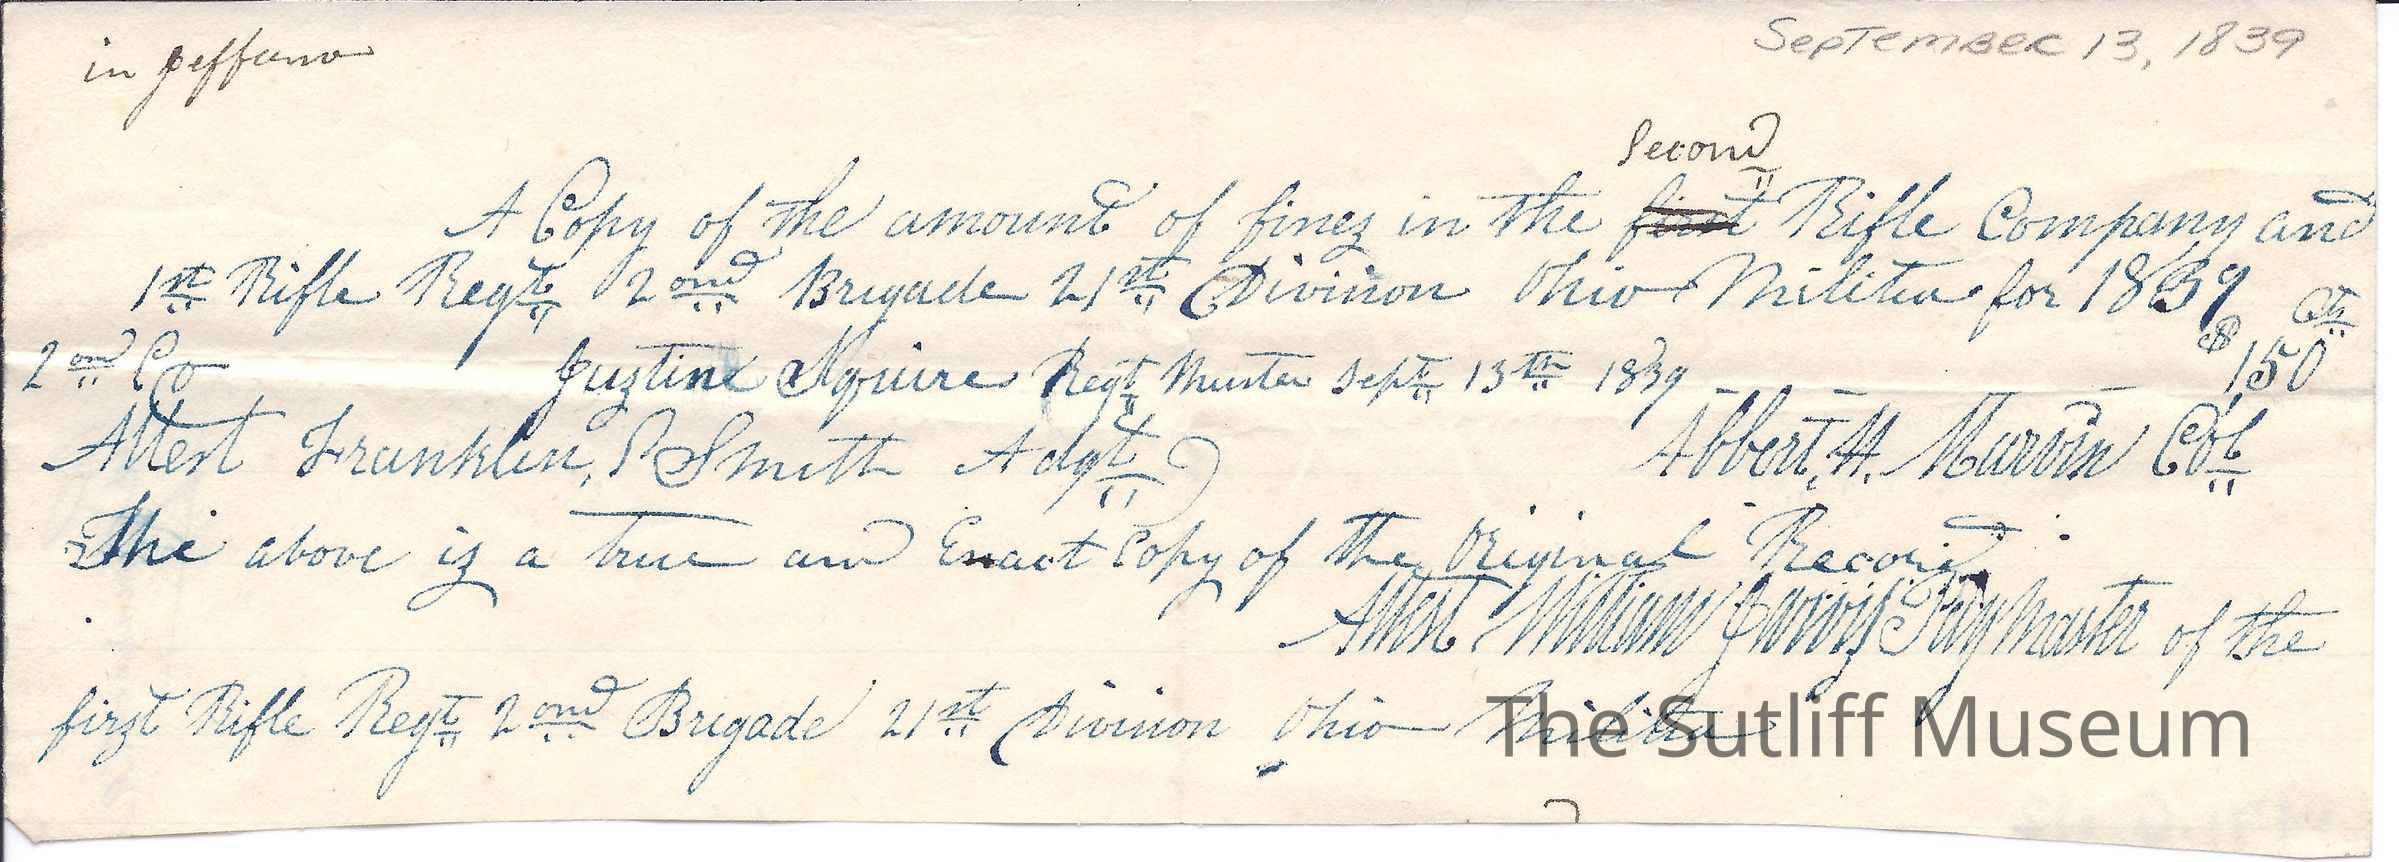 in Jefferso
September 13, 1839
Second
A Copy of the amount of finez in the first Rifle Company and
1st Rifle Regt 2ond Brigade 21st Division Ohio Militia for 1839
$ Cts
2ond Co Juztine Squire Regt Muster Sept 13th 1839 – – – 1,50
Attest Franklin, P Smith Adgt Abbert, H. Marvin Col
The above iz a true and Exact Copy of the Original Record
Attest William Jarviz Paymaster of the
firzt Rifle Regt 2ond Brigade 21st Division Ohio Militia
The Sutliff Museum